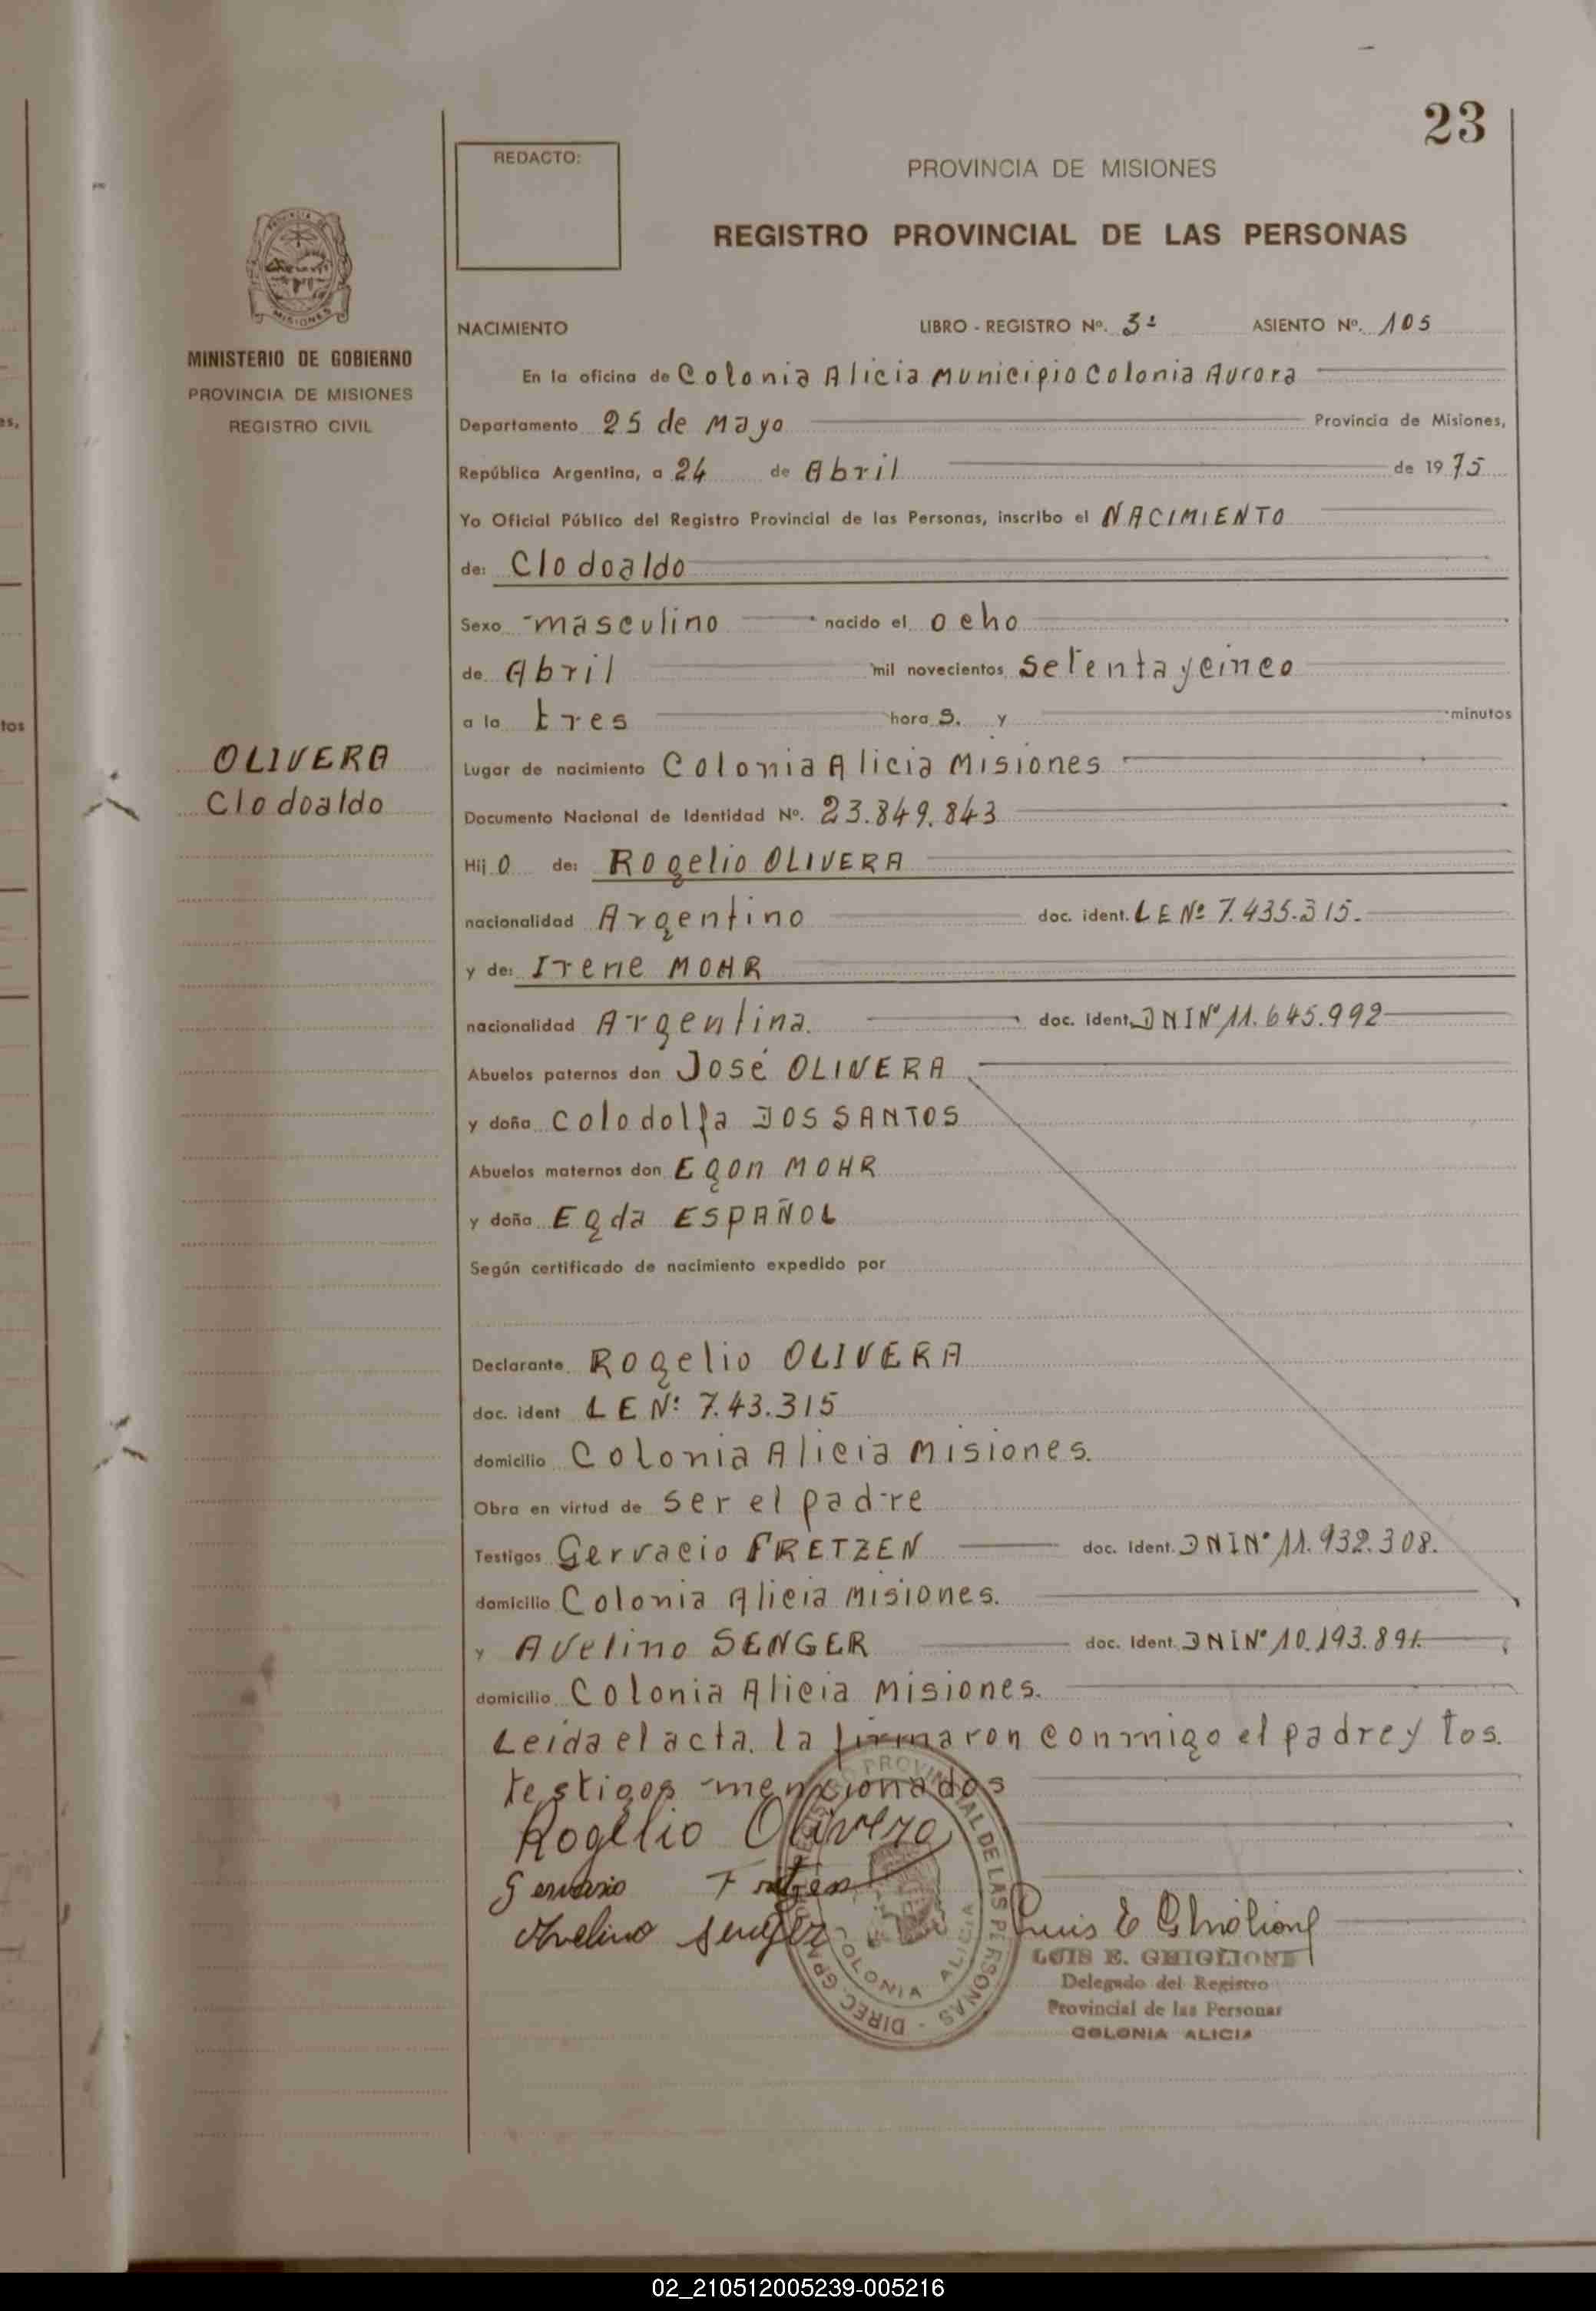 23
REDACTO:
PROVINCIA DE MISIONES
REGISTRO PROVINCIAL DE LAS PERSONAS
MINISTERIO DE GOBIERNO
PROVINCIA DE MISIONES
REGISTRO CIVIL
OLIVERA
Clodoaldo
NACIMIENTO LIBRO - REGISTRO Nº. 3º ASIENTO Nº. 105
En la oficina de Colonia Alicia Municipio Colonia Aurora
Departamento 25 de Mayo Provincia de Misiones,
República Argentina, a 24 de Abril de 1975
Yo Oficial Público del Registro Provincial de las Personas, inscribo el NACIMIENTO
de: Clodoaldo
Sexo masculino nacido el ocho
de Abril mil novecientos setenta y cinco
a la tres hora s. y minutos
Lugar de nacimiento Colonia Alicia Misiones
Documento Nacional de Identidad Nº. 23.849.843
Hijo de: Rogelio OLIVERA
nacionalidad Argentino doc. ident. L E Nº 7.435.315.
y de: Irene MOHR
nacionalidad Argentina. doc. ident. DNI Nº 11.645.992
Abuelos paternos don José OLIVERA
y doña Colodolfa DOS SANTOS
Abuelos maternos don Egon MOHR
y doña Egda ESPAÑOL
Según certificado de nacimiento expedido por
Declarante Rogelio OLIVERA
doc. ident L E Nº 7.43.315
domicilio Colonia Alicia Misiones.
Obra en virtud de ser el padre
Testigos Gervacio FRETZEN doc. ident. DNI Nº 11.932.308.
domicilio Colonia Alicia Misiones.
y Avelino SENGER doc. ident. DNI Nº 10.193.891.
domicilio Colonia Alicia Misiones.
Leida el acta. la firmaron conmigo el padre y los.
testigos mencionados
Rogelio Olivera
Gervasio Fretzen
Avelino Senger
Luis E Ghiglione
LUIS E. GHIGLIONE
Delegado del Registro
Provincial de las Personas
COLONIA ALICIA
PROVINCIAL DE LAS PERSONAS - DIREC. GRAL.
COLONIA ALICIA
PROVINCIA DE
MISIONES
es,
tos
02_210512005239-005216